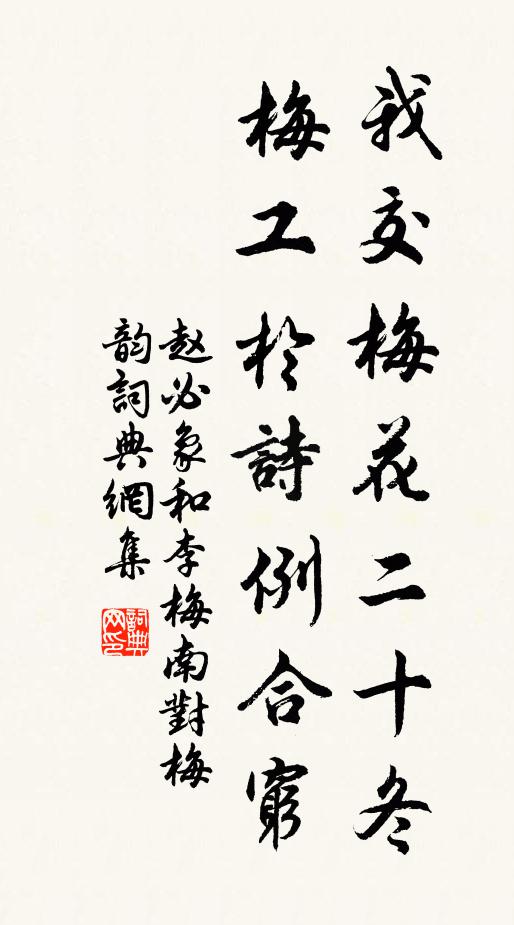 我交梅花二十冬
梅工於詩例合窮
赵必象和李梅南對梅
韵詞典網集
詞典
网印